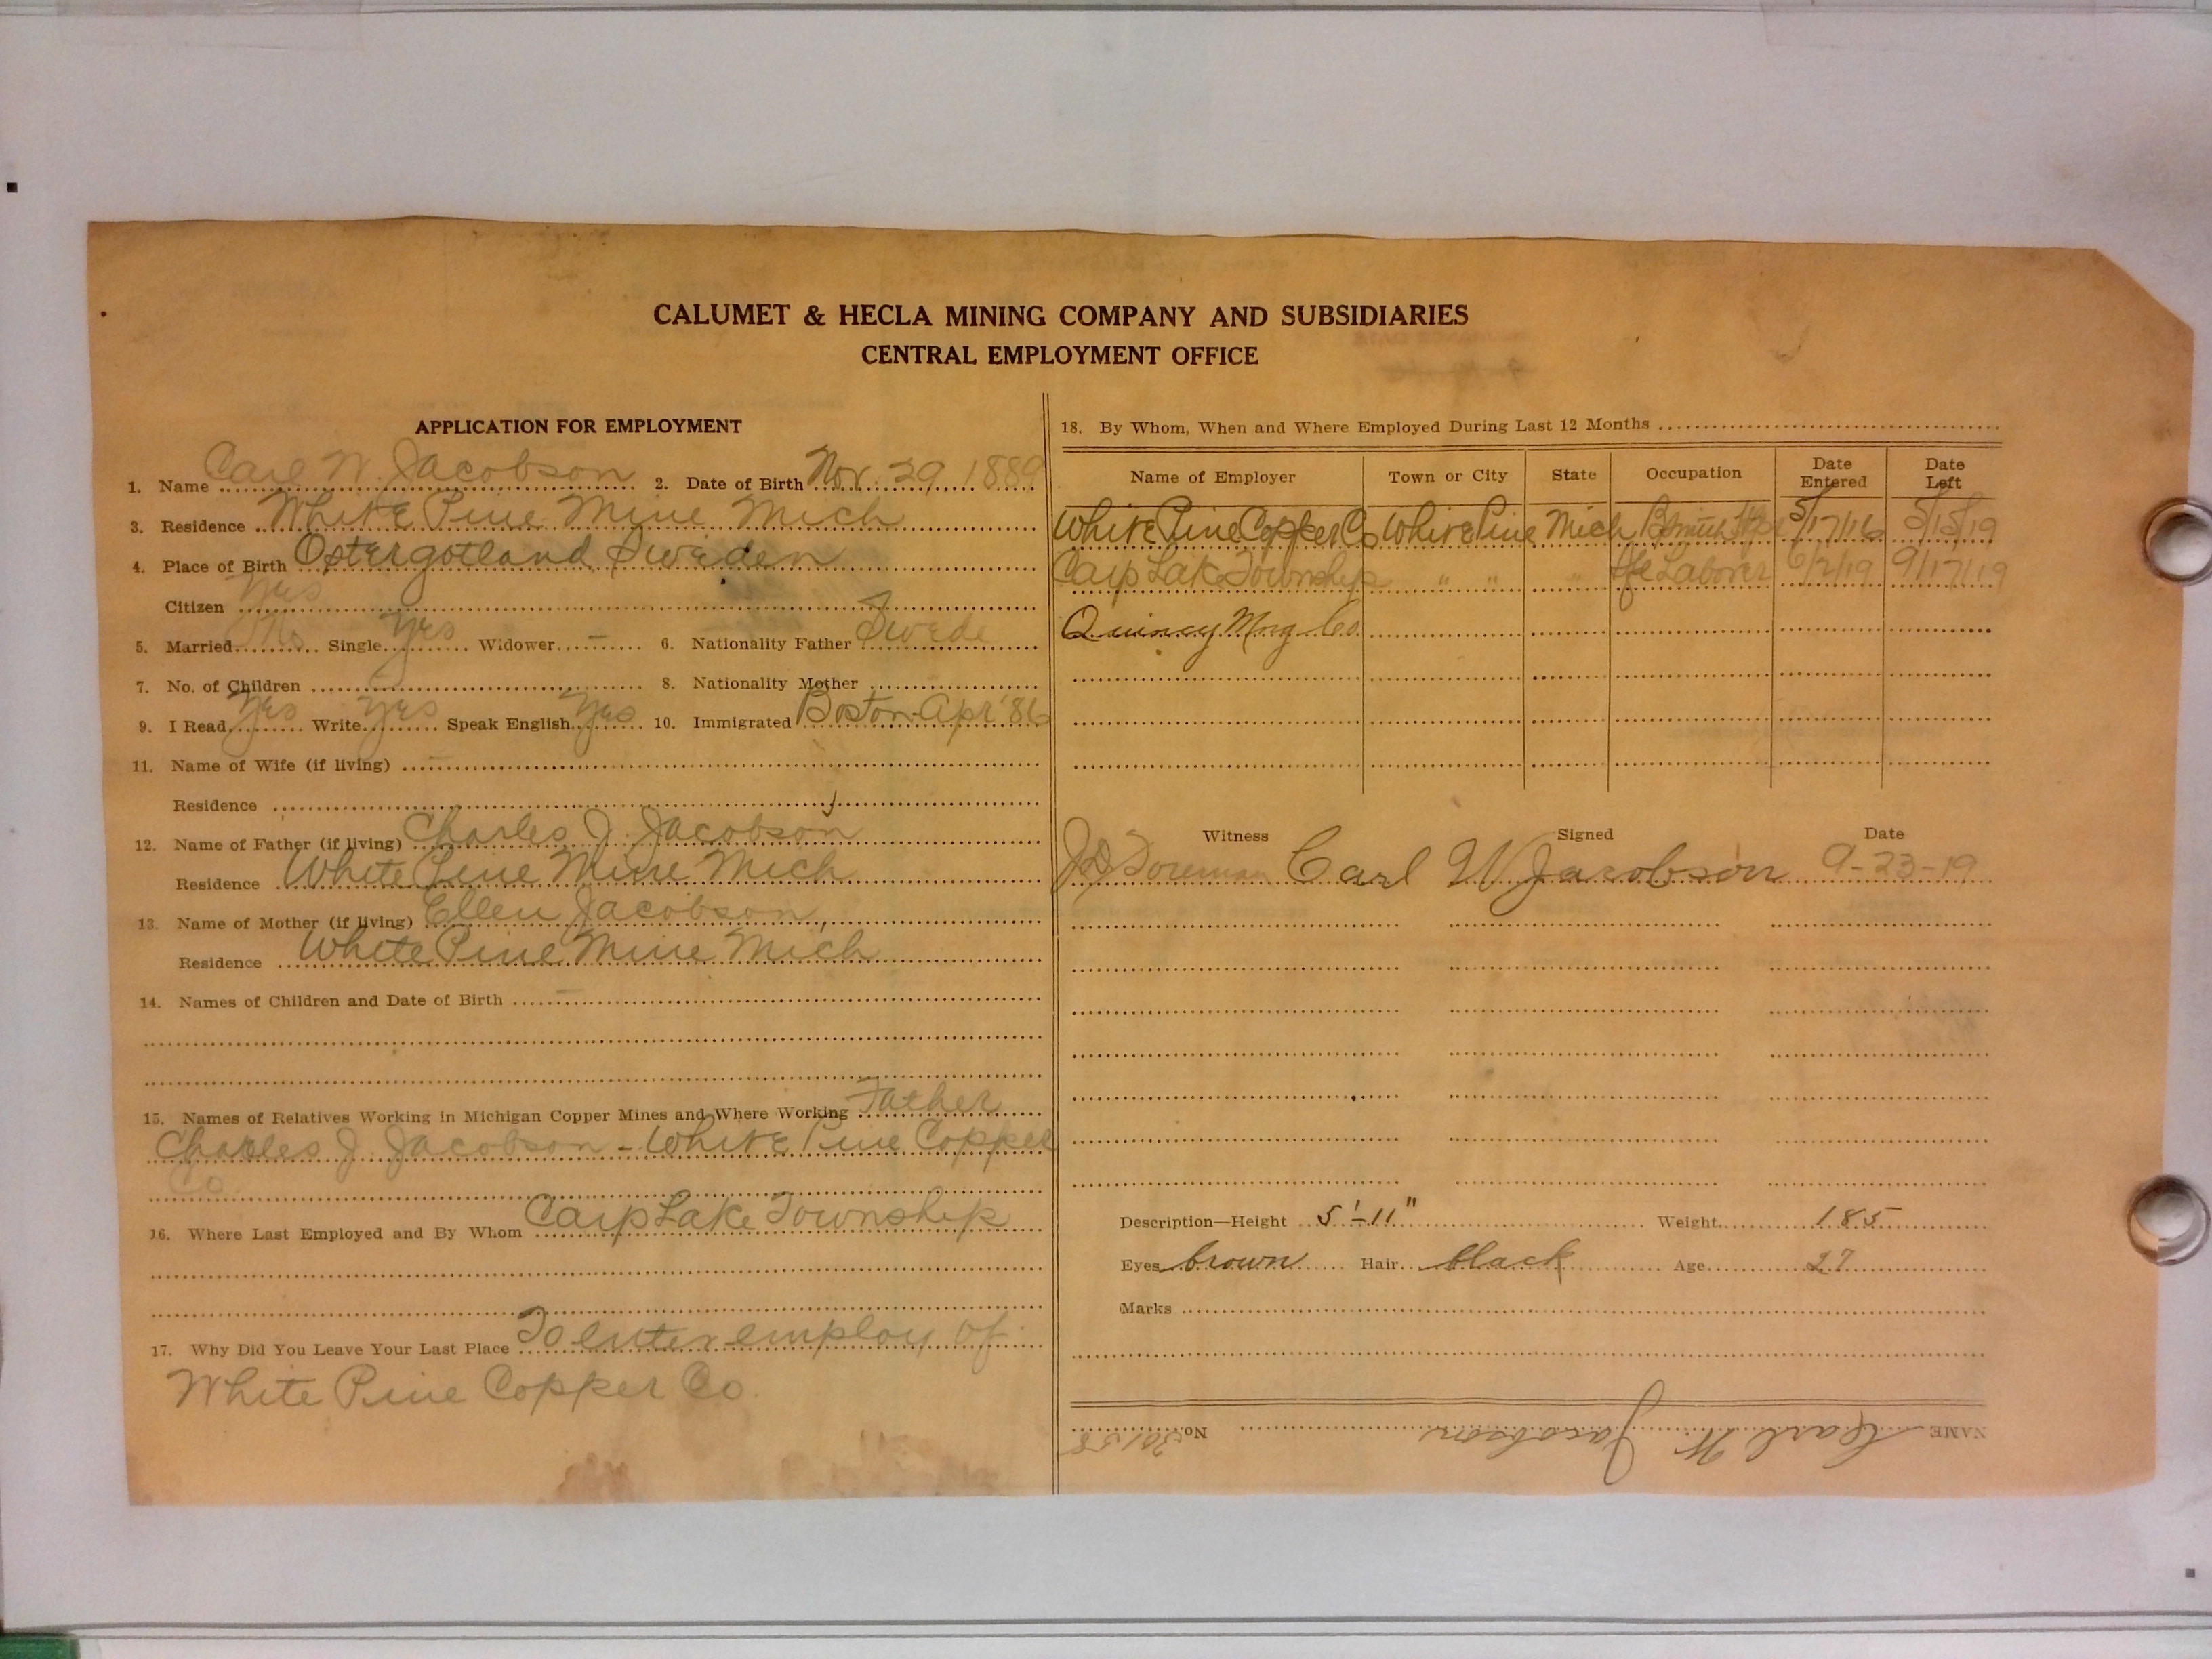 CALUMET & HECLA MINING COMPANY AND SUBSIDIARIES
CENTRAL EMPLOYMENT OFFICE
APPLICATION FOR EMPLOYMENT
1. Name Carl W. Jacobson 2. Date of Birth Nov. 29 1889
3. Residence White Pine Mine Mich
4. Place of Birth Ostergotland Sweden
Citizen Yes
5. Married No Single Yes Widower – 6. Nationality Father Swede
7. No. of Children – 8. Nationality Mother "
9. I Read Yes Write Yes Speak English Yes 10. Immigrated Boston Apr '86
11. Name of Wife (if living) –
Residence
12. Name of Father (if living) Charles J. Jacobson
Residence White Pine Mine Mich
13. Name of Mother (if living) Ellen Jacobson
Residence White Pine Mine Mich
14. Names of Children and Date of Birth –
15. Names of Relatives Working in Michigan Copper Mines and Where Working Father
Charles J. Jacobson - White Pine Copper
Co
16. Where Last Employed and By Whom Carp Lake Township
17. Why Did You Leave Your Last Place To enter employ of
White Pine Copper Co.
18. By Whom, When and Where Employed During Last 12 Months
Name of Employer Town or City State Occupation Date Entered Date Left
White Pine Copper Co White Pine Mich 5/17/16 5/15/19
Carp Lake Township " " " Laborer 6/2/19 9/17/19
Quincy Mng. Co.
Witness Signed Date
Carl W Jacobson 9-23-19
Description—Height 5'-11" Weight 185
Eyes brown Hair black Age 27
Marks
NAME Carl W. Jacobson No.